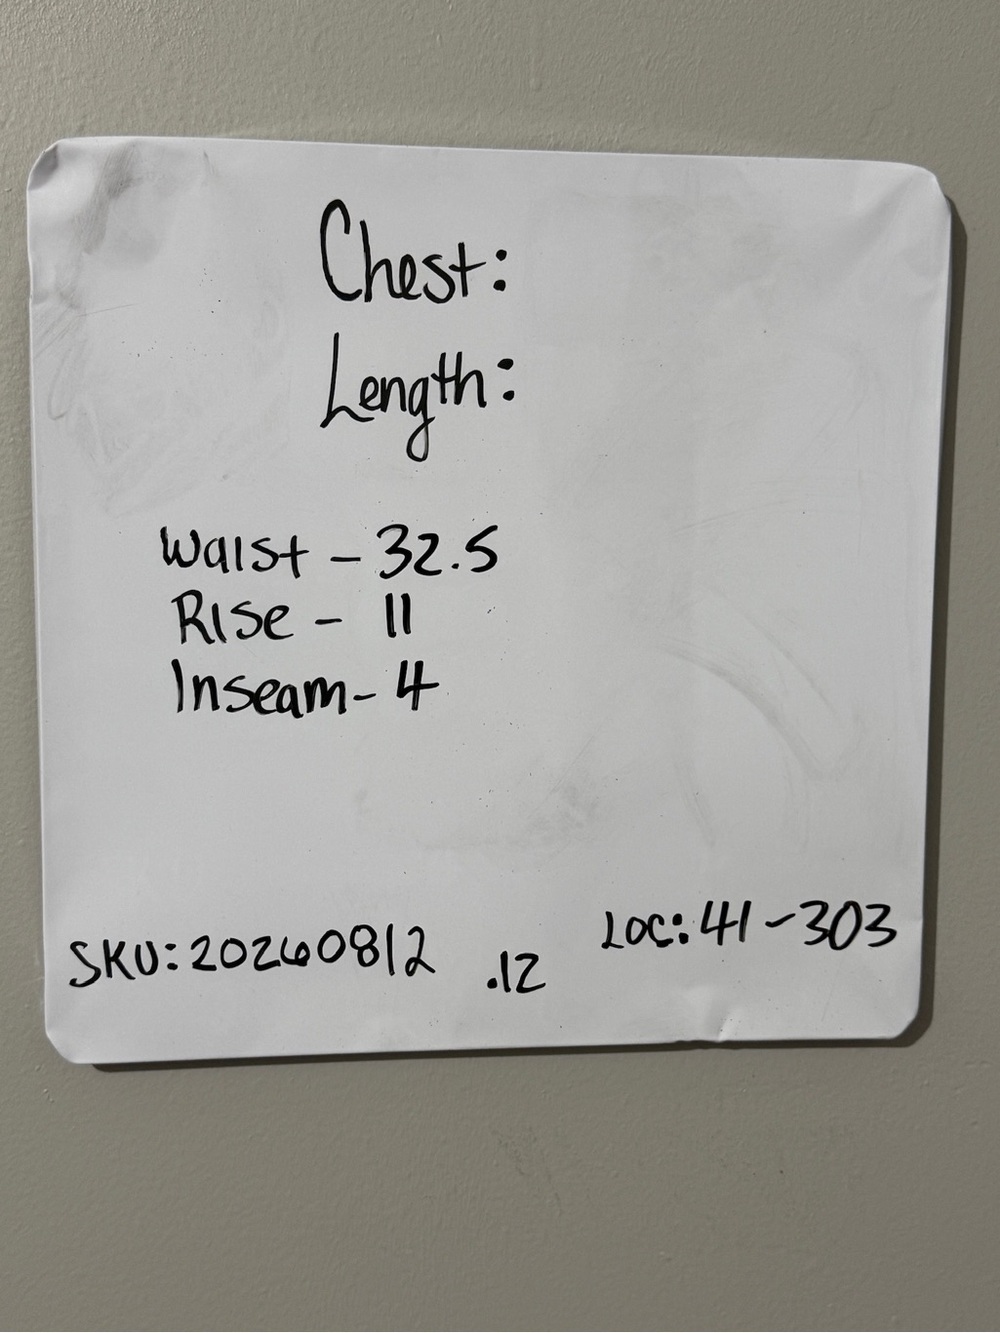 Chest:
Length:
Waist - 32.5
Rise - 11
Inseam - 4
SKU: 20260812 .12 LOC: 41-303